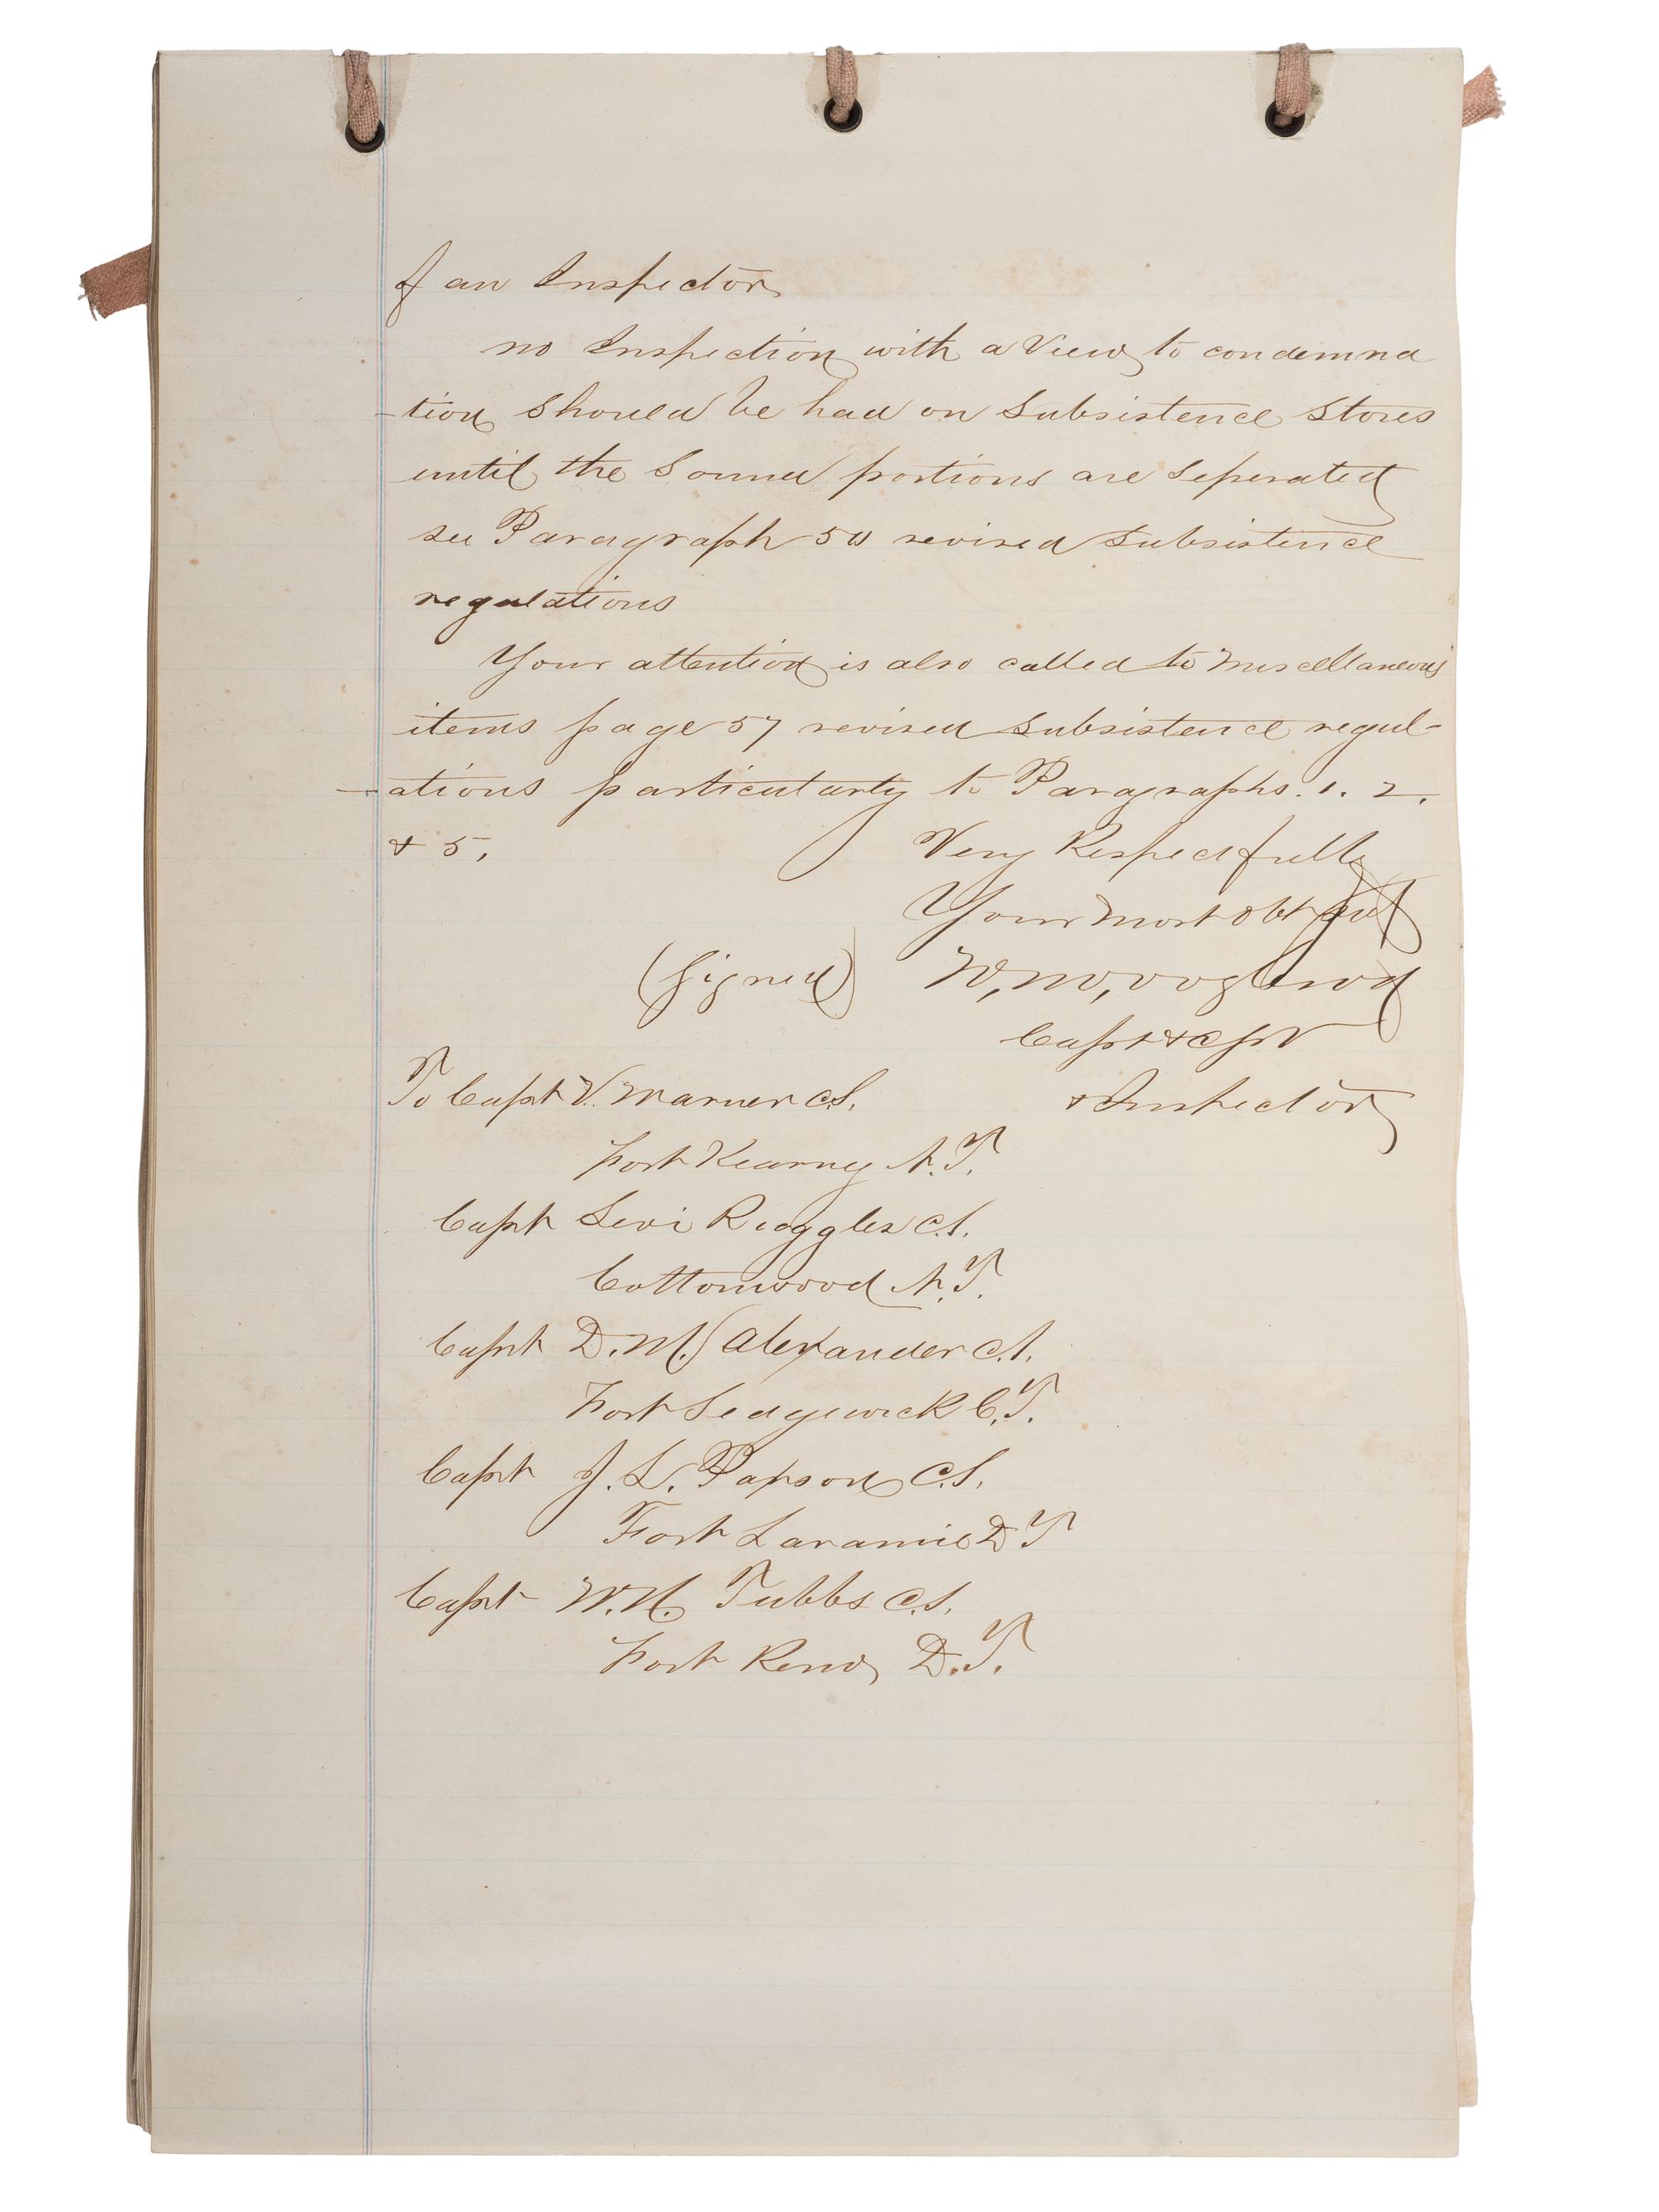 of an Inspector
no Inspection with a View to condemna
-tion should be had on subsistence stores
until the sound portions are seperated
see Paragraph 50 revised subsistence
regulations
Your attention is also called to miscellaneous
items page 57 revised subsistence regul-
-ations particularly to Paragraphs. 1. 2.
& 5,
Very Respectfully
Your most obt svt
(signed)
Capt &
To Capt V. Warner C.S.
& Inspector
Fort Kearney N.T.
Capt Levi Ruggles C.S.
Cottonwood N.T.
Capt D. M. Alexander C.S.
Fort Sedgewick C.T.
Capt J. L. Rapson C.S.
Fort Laramie D T
Capt W. H. Tubbs C.S.
Fort Reno D.T.